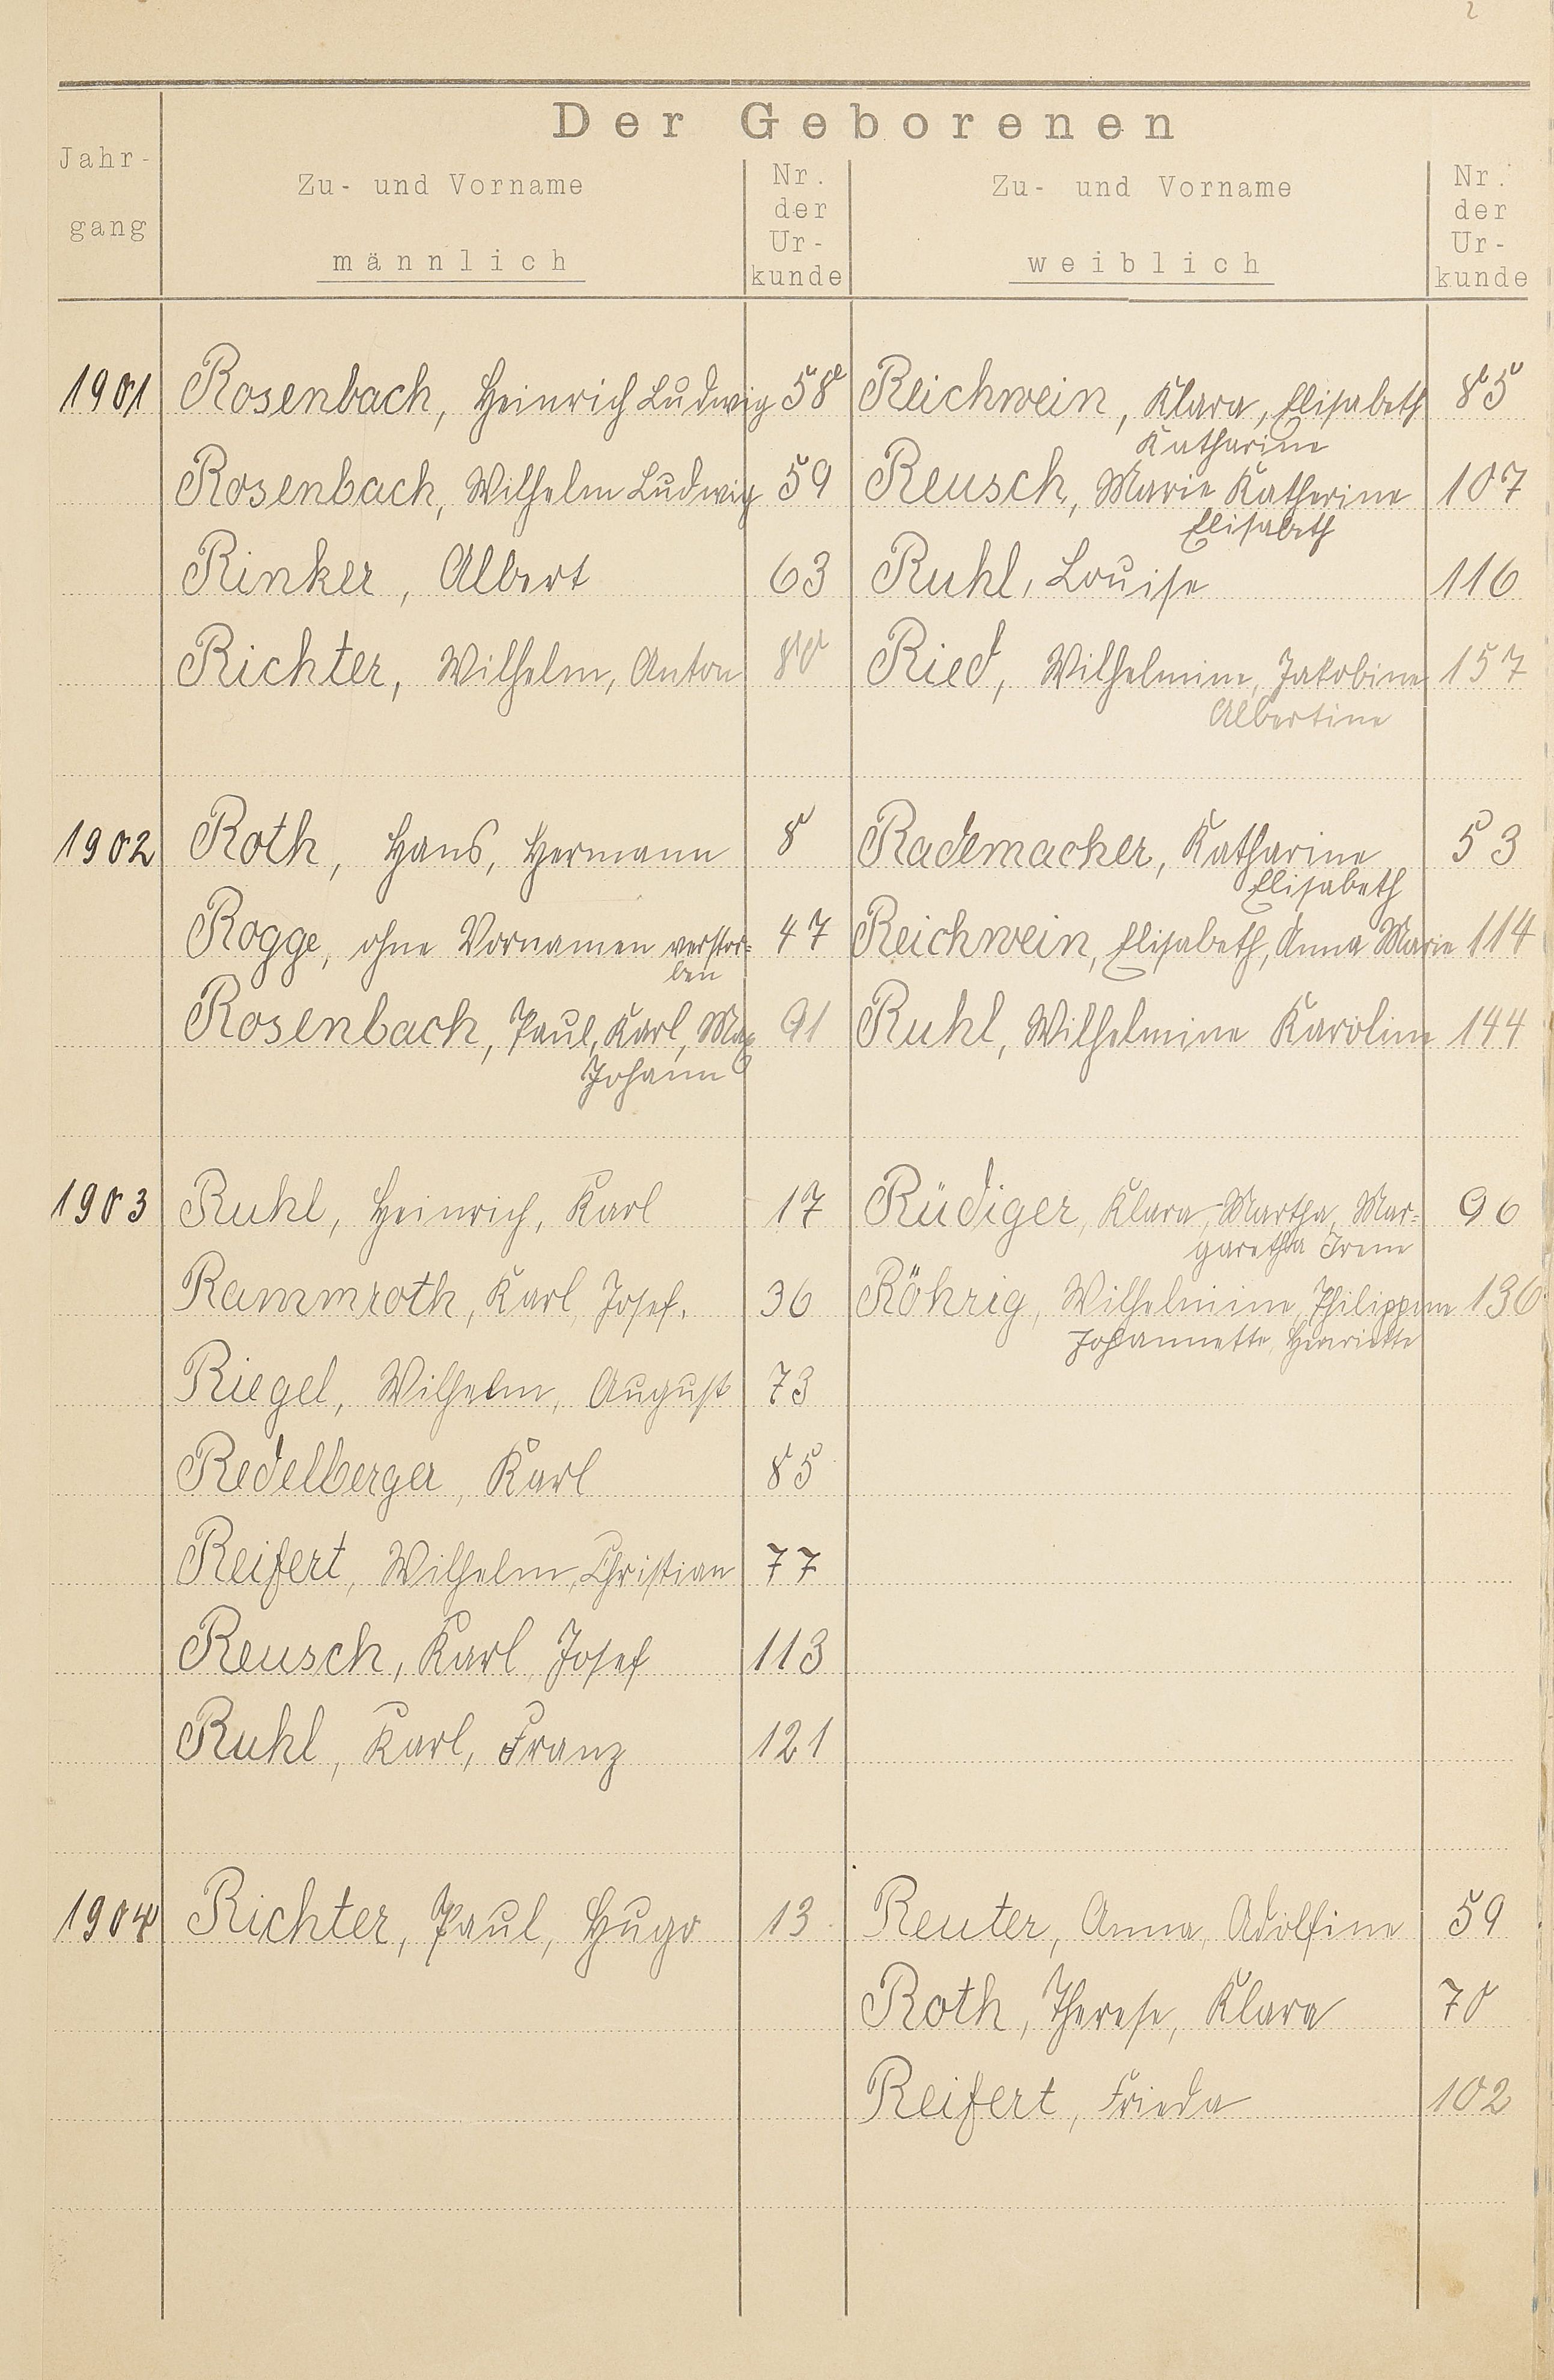 2
Der Geborenen
Jahr-
gang
Zu- und Vorname
männlich
Nr.
der
Ur-
kunde
Zu- und Vorname
weiblich
Nr.
der
Ur-
kunde
1901 Rosenbach, Heinrich Ludwig 58 Reichwein, Klara, Elisabeth 85
Katharine
Rosenbach, Wilhelm Ludwig 59 Reusch, Marie Katherine 107
Elisabeth
Rinker, Albert 63 Ruhl, Louise 116
Richter, Wilhelm, Anton 80 Ried, Wilhelmine, Jakobine 157
Albertine
1902 Roth, Hans, Hermann 8 Rademacher, Katharine 53
Elisabeth
Rogge, ohne Vornamen verstor= 47 Reichwein, Elisabeth, Anna Marie 114
ben
Rosenbach, Paul, Karl, Max 91 Ruhl, Wilhelmine Karoline 144
Johann
1903 Ruhl, Heinrich, Karl 17 Rüdiger, Klara, Martha, Mar= 96
garetha Irene
Rammroth, Karl, Josef. 36 Röhrig, Wilhelmine, Philippine 136
Johannette, Henriette
Riegel, Wilhelm, August 73
Redelberger, Karl 85
Reifert, Wilhelm, Christian 77
Reusch, Karl, Josef 113
Ruhl, Karl, Franz 121
1904 Richter, Paul, Hugo 13 Reuter, Anna, Adolfine 59
Roth, Therese, Klara 70
Reifert, Frieda 102